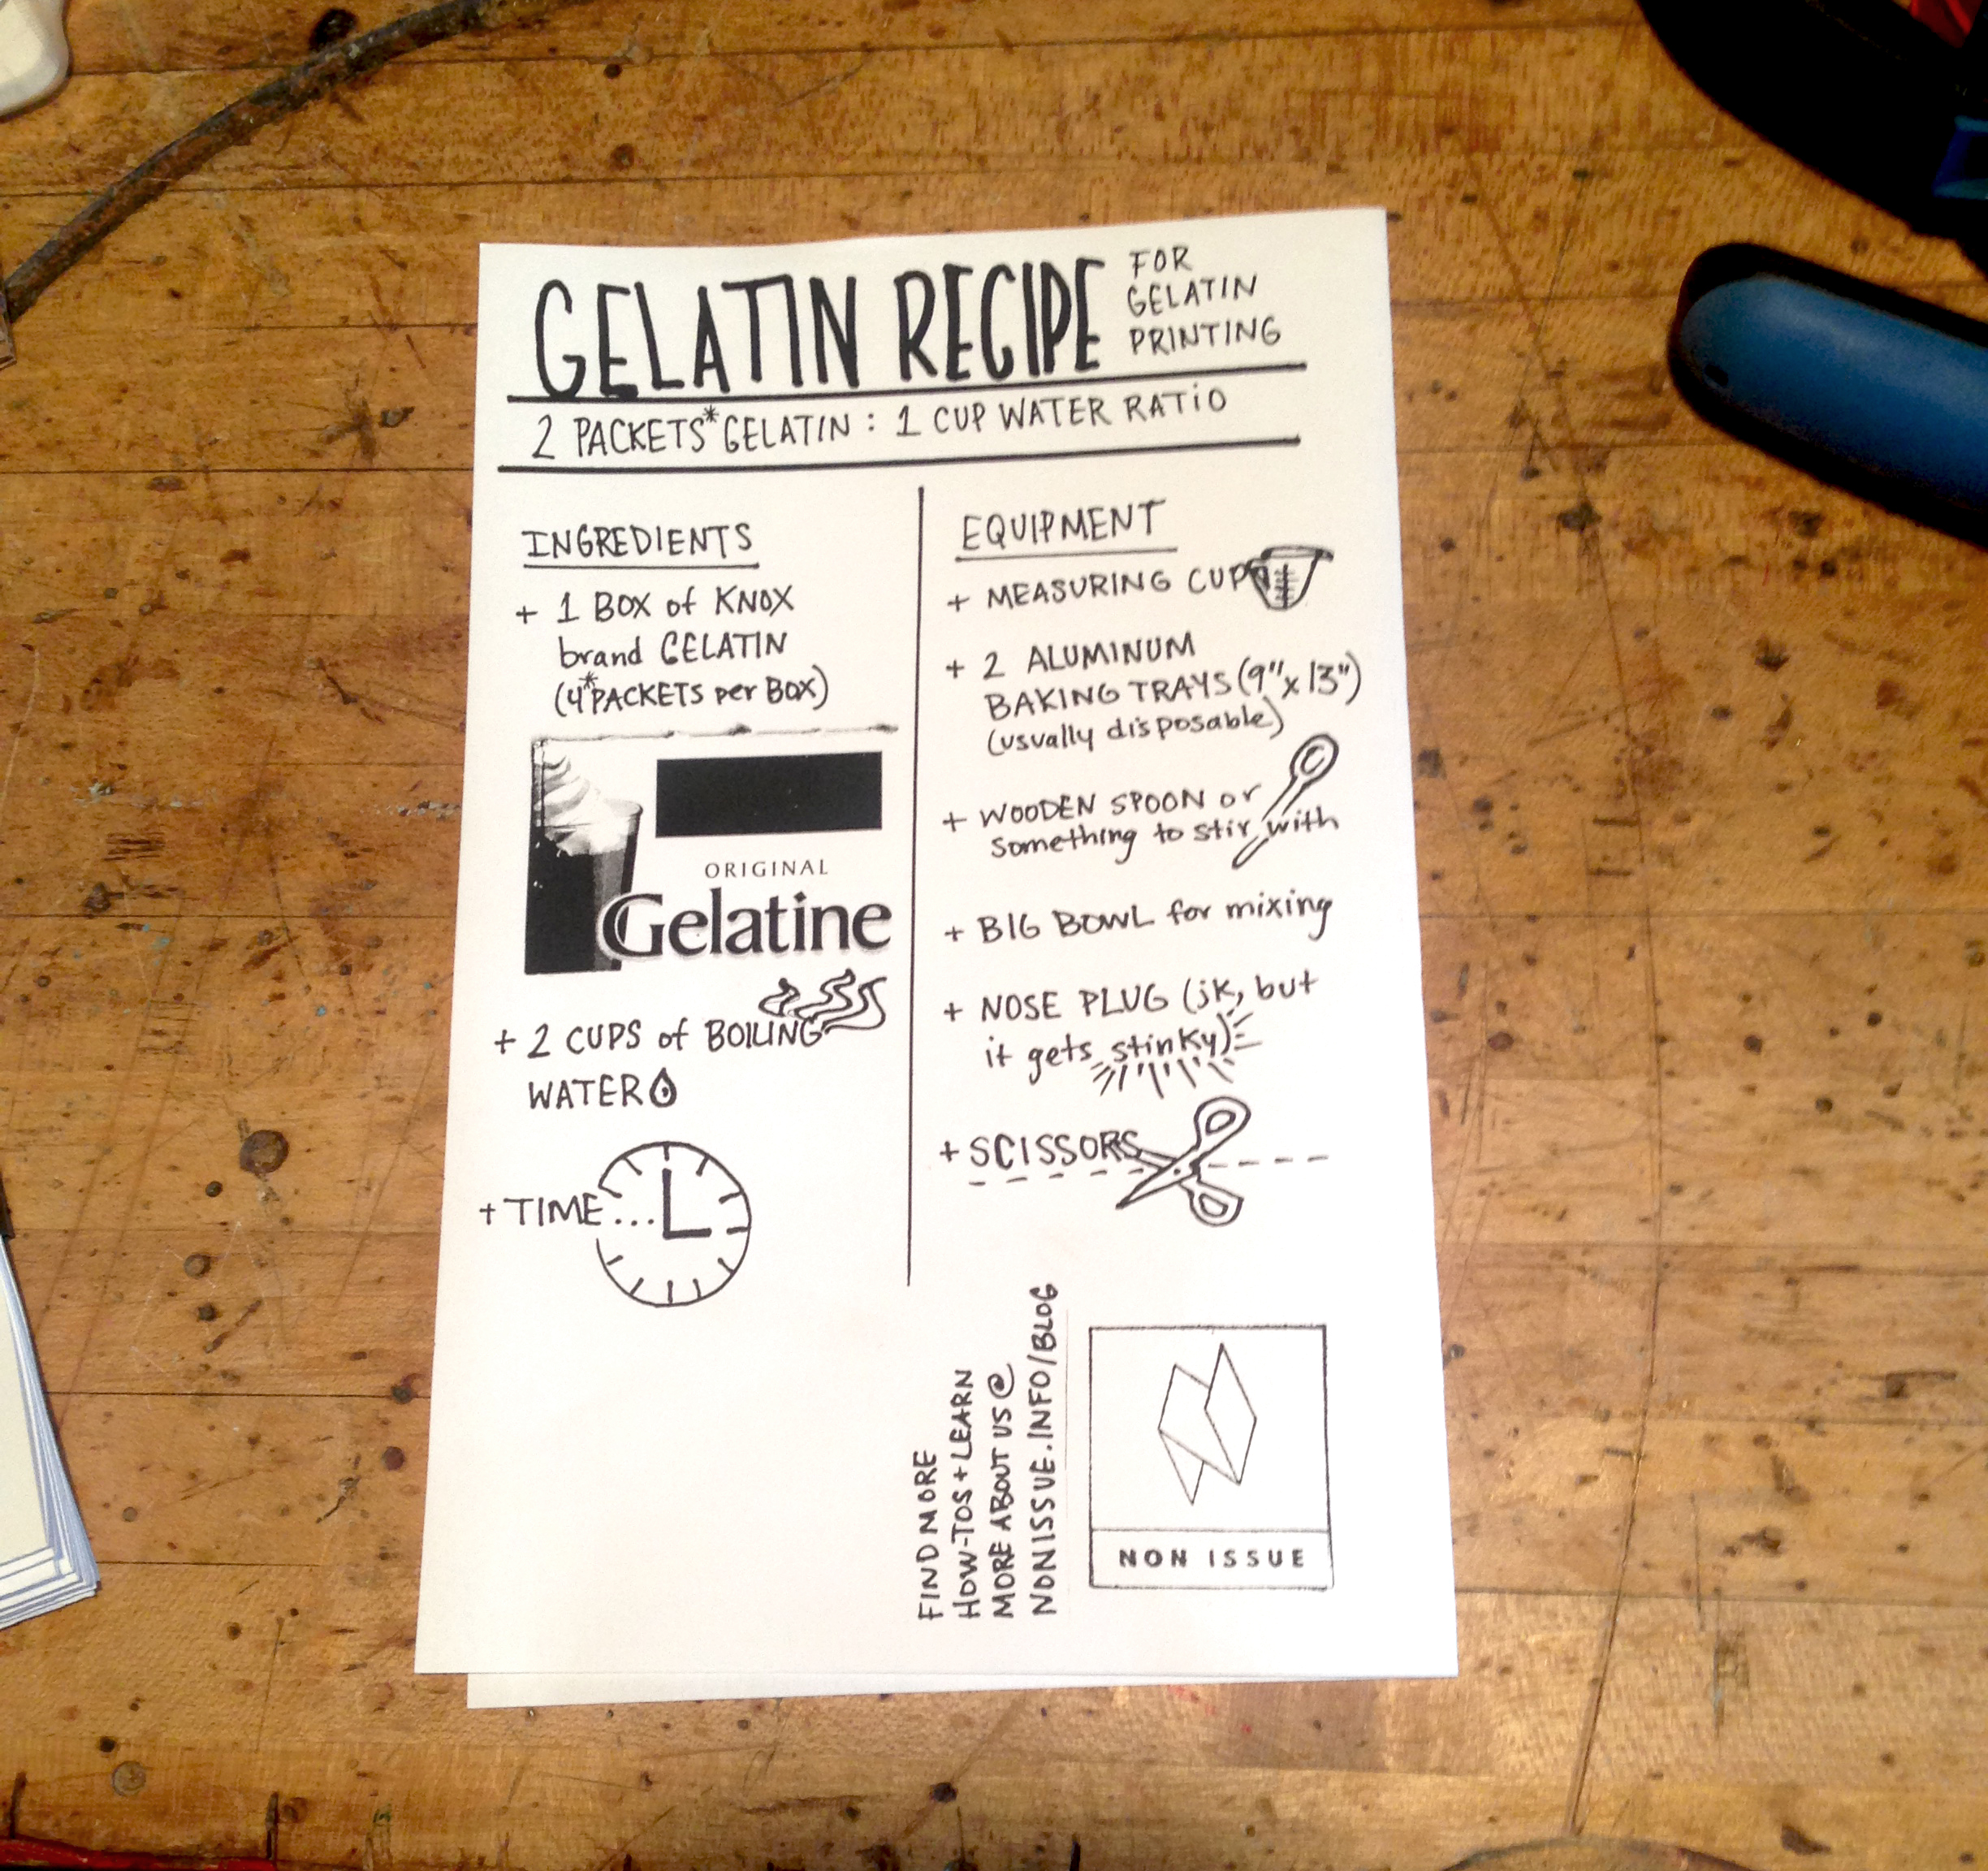 GELATIN RECIPE
FOR
GELATIN
PRINTING
2 PACKETS* GELATIN : 1 CUP WATER RATIO
INGREDIENTS
+ 1 BOX of KNOX
brand GELATIN
(4* PACKETS per BOX)
ORIGINAL
Gelatine
+ 2 CUPS of BOILING
WATER
+ TIME...
EQUIPMENT
+ MEASURING CUP
+ 2 ALUMINUM
BAKING TRAYS (9" x 13")
(usually disposable)
+ WOODEN SPOON or
something to stir with
+ BIG BOWL for mixing
+ NOSE PLUG (jk, but
it gets stinky)
+ SCISSORS
FIND MORE
HOW-TOS + LEARN
MORE ABOUT US @
NONISSUE.INFO/BLOG
NON ISSUE